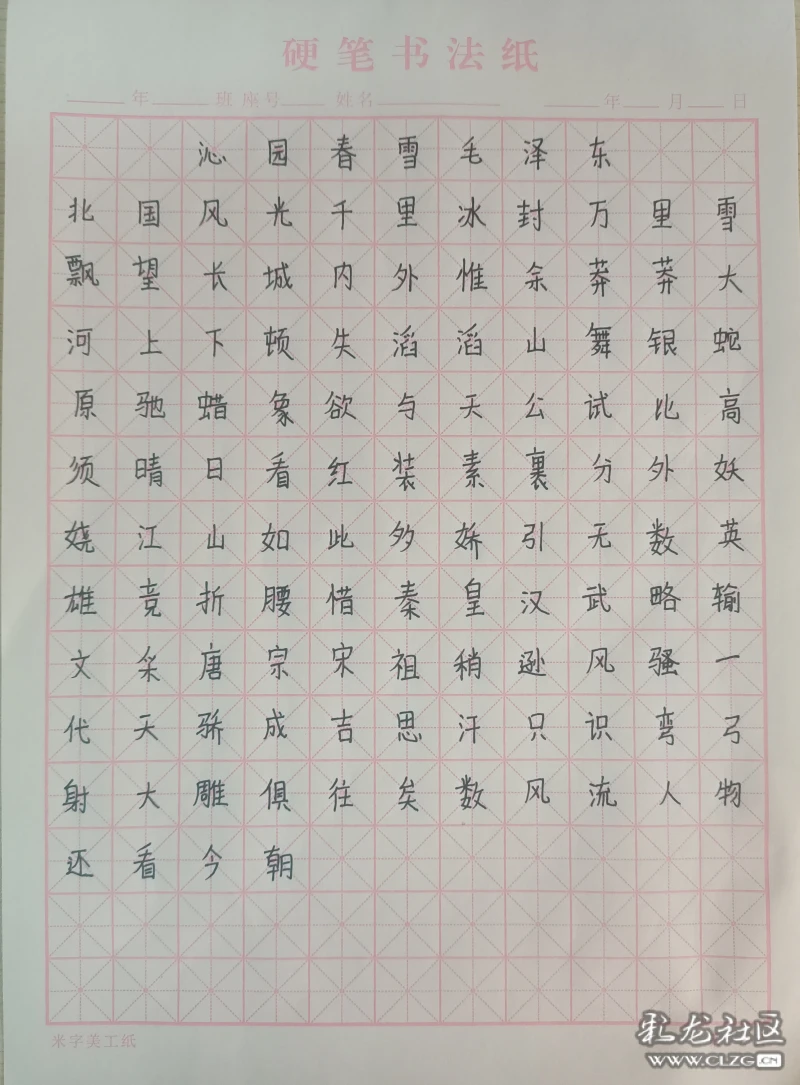 硬笔书法纸
年 班 座号 姓名 年 月 日
沁园春雪毛泽东
北国风光千里冰封万里雪
飘望长城内外惟余莽莽大
河上下顿失滔滔山舞银蛇
原驰蜡象欲与天公试比高
须晴日看红装素裹分外妖
娆江山如此多娇引无数英
雄竞折腰惜秦皇汉武略输
文采唐宗宋祖稍逊风骚一
代天骄成吉思汗只识弯弓
射大雕俱往矣数风流人物
还看今朝
米字美工纸
彩龙社区
www.clzg.cn